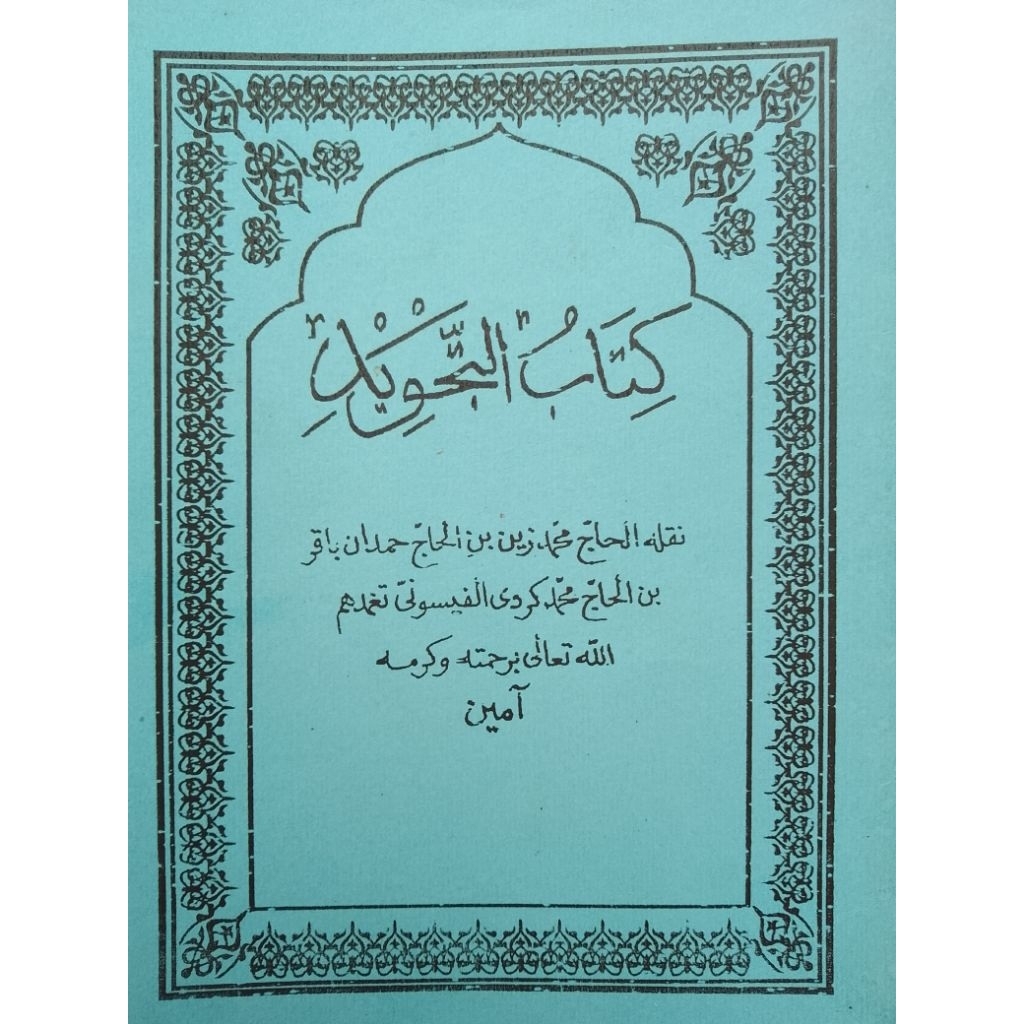 كِتَابُ التَّجْوِيْدِ
نقله الحاجّ محمّد زين بن الحاجّ حمدان باقر
بن الحاجّ محمّد كردى الفيسونىّ تغمدهم
الله تعالى برحمته وكرمه
آمين